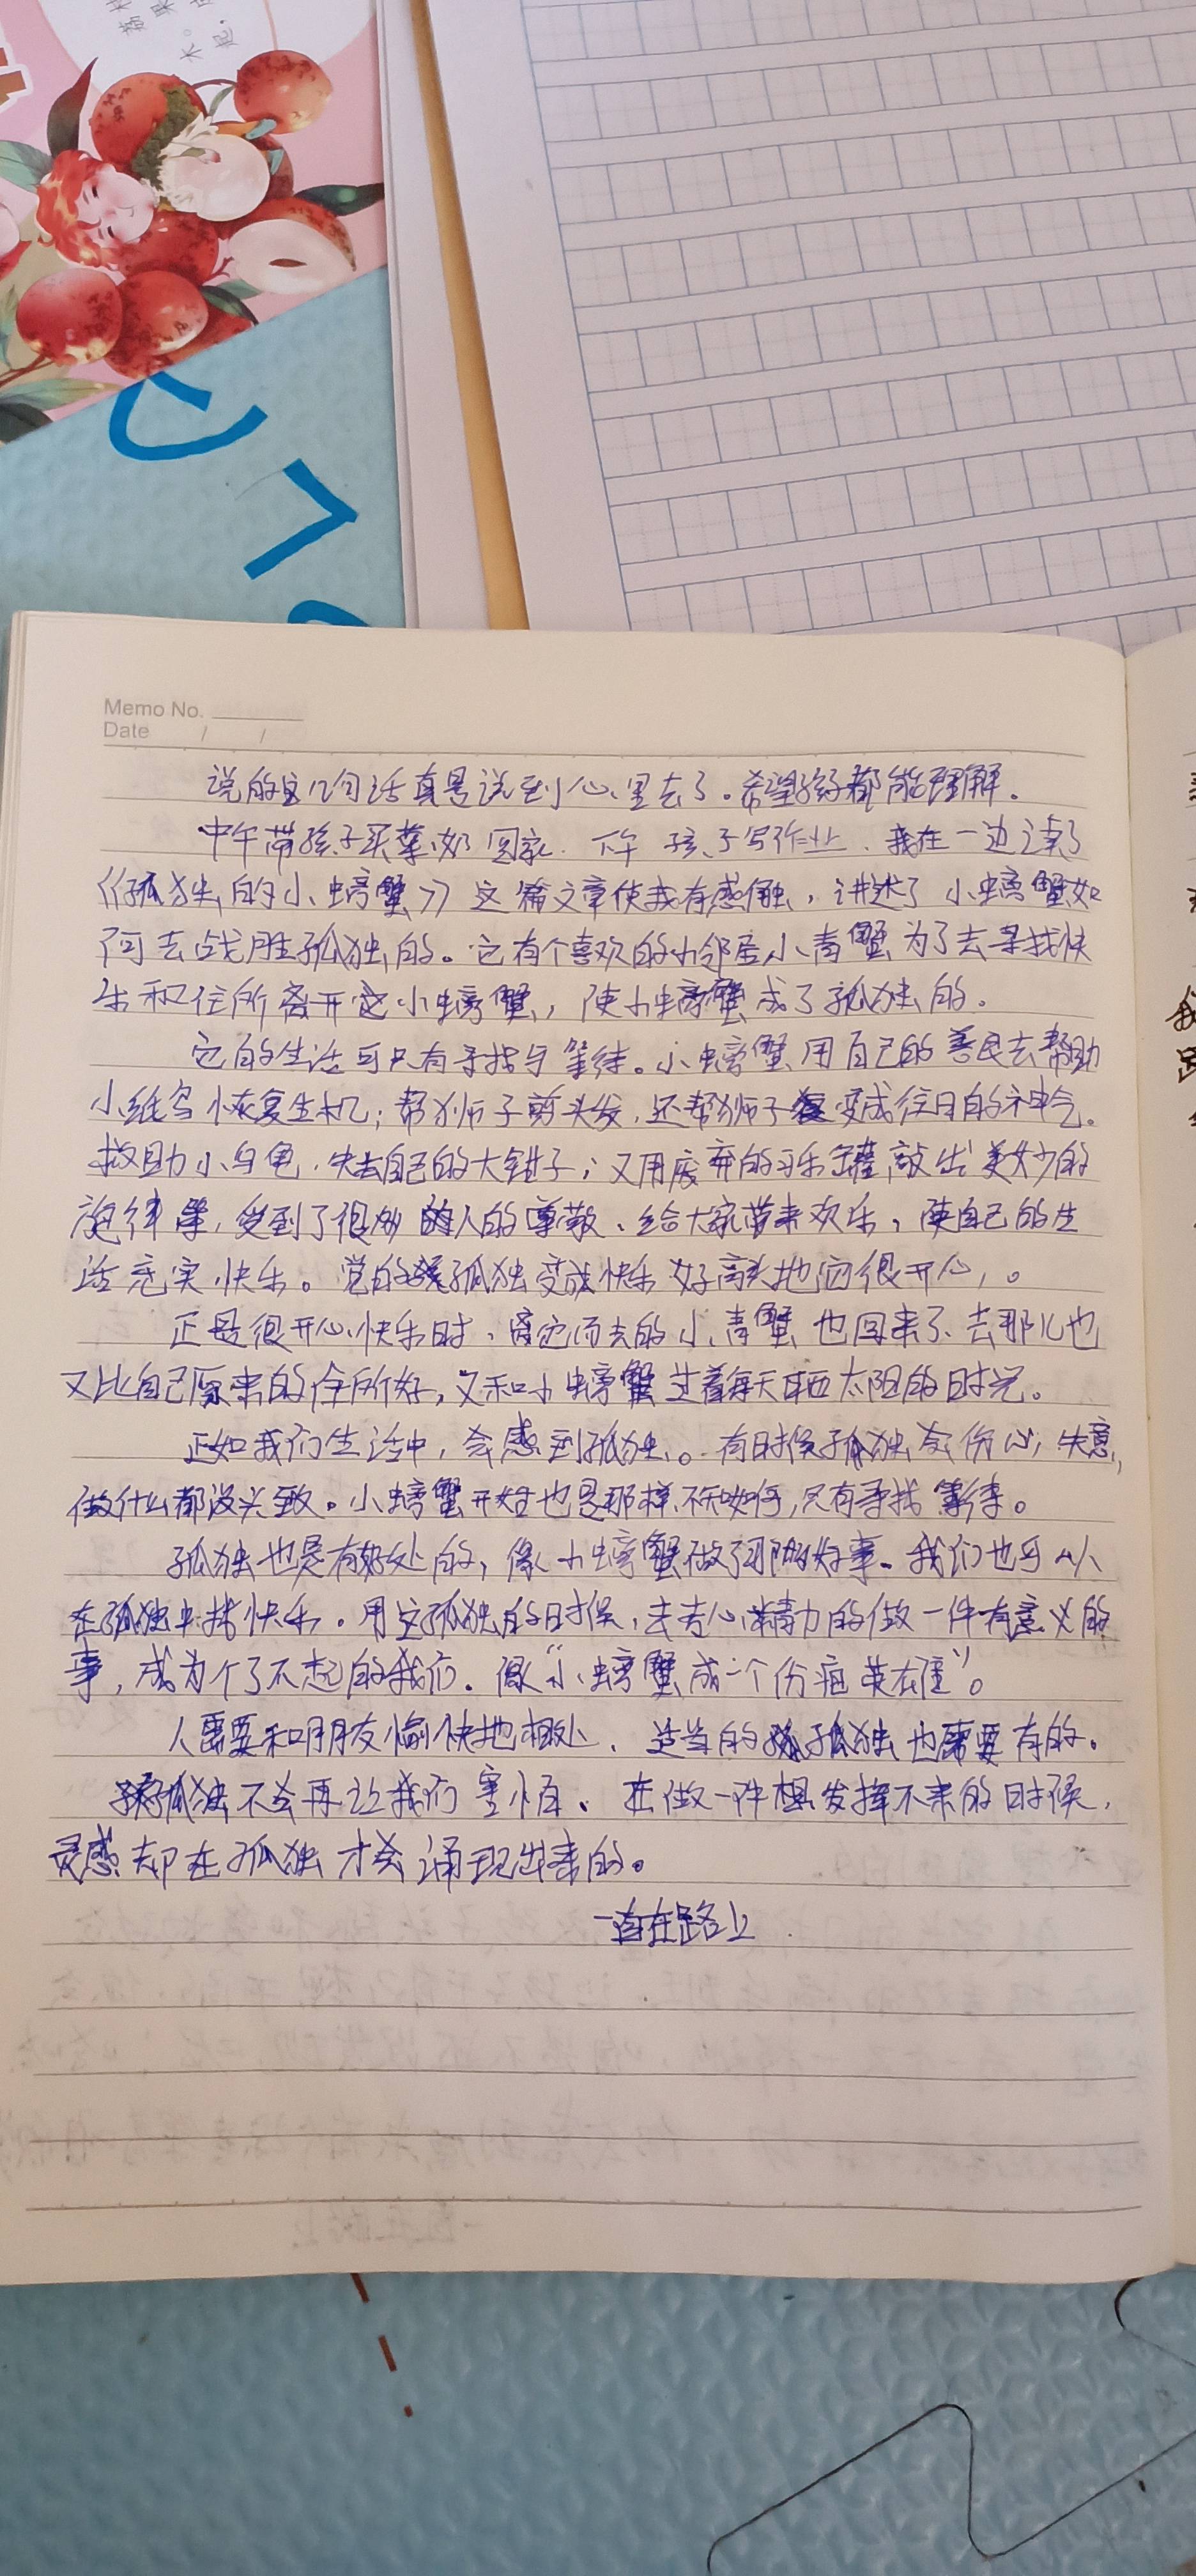 Memo No.
Date / /
说的这几句话真是说到心里去了。希望孩子都能理解。
中午带孩子买菜奶回家.下午 孩子写作业、我在一边读了
《孤独的小螃蟹》这篇文章使我有感触，讲述了小螃蟹如
何去战胜孤独的。它有个喜欢的小邻居小青蟹为了去寻找快
乐和住所离开 小螃蟹，使小螃蟹成了孤独的.
它的生活可只有寻找与等待。小螃蟹用自己的善良去帮助
小纸鸟 恢复生机；帮狮子剪头发，还帮狮子 变成往日的神气。
救助小乌龟.失去自己的大钳子；又用废弃的 乐罐敲出美妙的
旋律 ，受到了很多 人的尊敬、给大家带来欢乐，使自己的生
活充实快乐。觉的 孤独变成快乐 好高兴地 很开心，。
正是很开心快乐时、离它而去的小青蟹也回来了、去那儿也
又比自己原来的住所好，又和小螃蟹过着每天晒太阳的时光。
正如我们生活中，会感到孤独。有时候孤独会伤心，失意，
做什么都没兴致。小螃蟹开始也是那样不知如何，只有寻找等待。
孤独也是有好处的，像小螃蟹做了 好事。我们也可以
在孤独中找快乐。用它孤独的时候，去 心 精力的做一件有意义的
事，成为个了不起的我们.像“小螃蟹成一个伤疤英雄”。
人需要和朋友愉快地相处、适当的 孤独也需要有的。
孤独不会再让我们害怕、在做一件想发挥不来的时候，
灵感却在孤独才会涌现出来的。
一直在路上